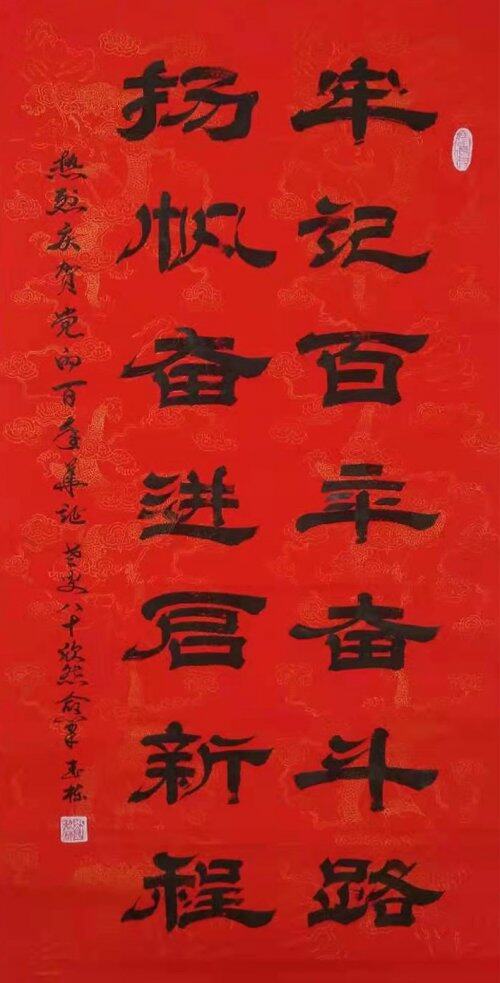 牢记百年奋斗路
扬帆奋进启新程
热烈庆贺党的百年华诞 老叟八十欣然命笔